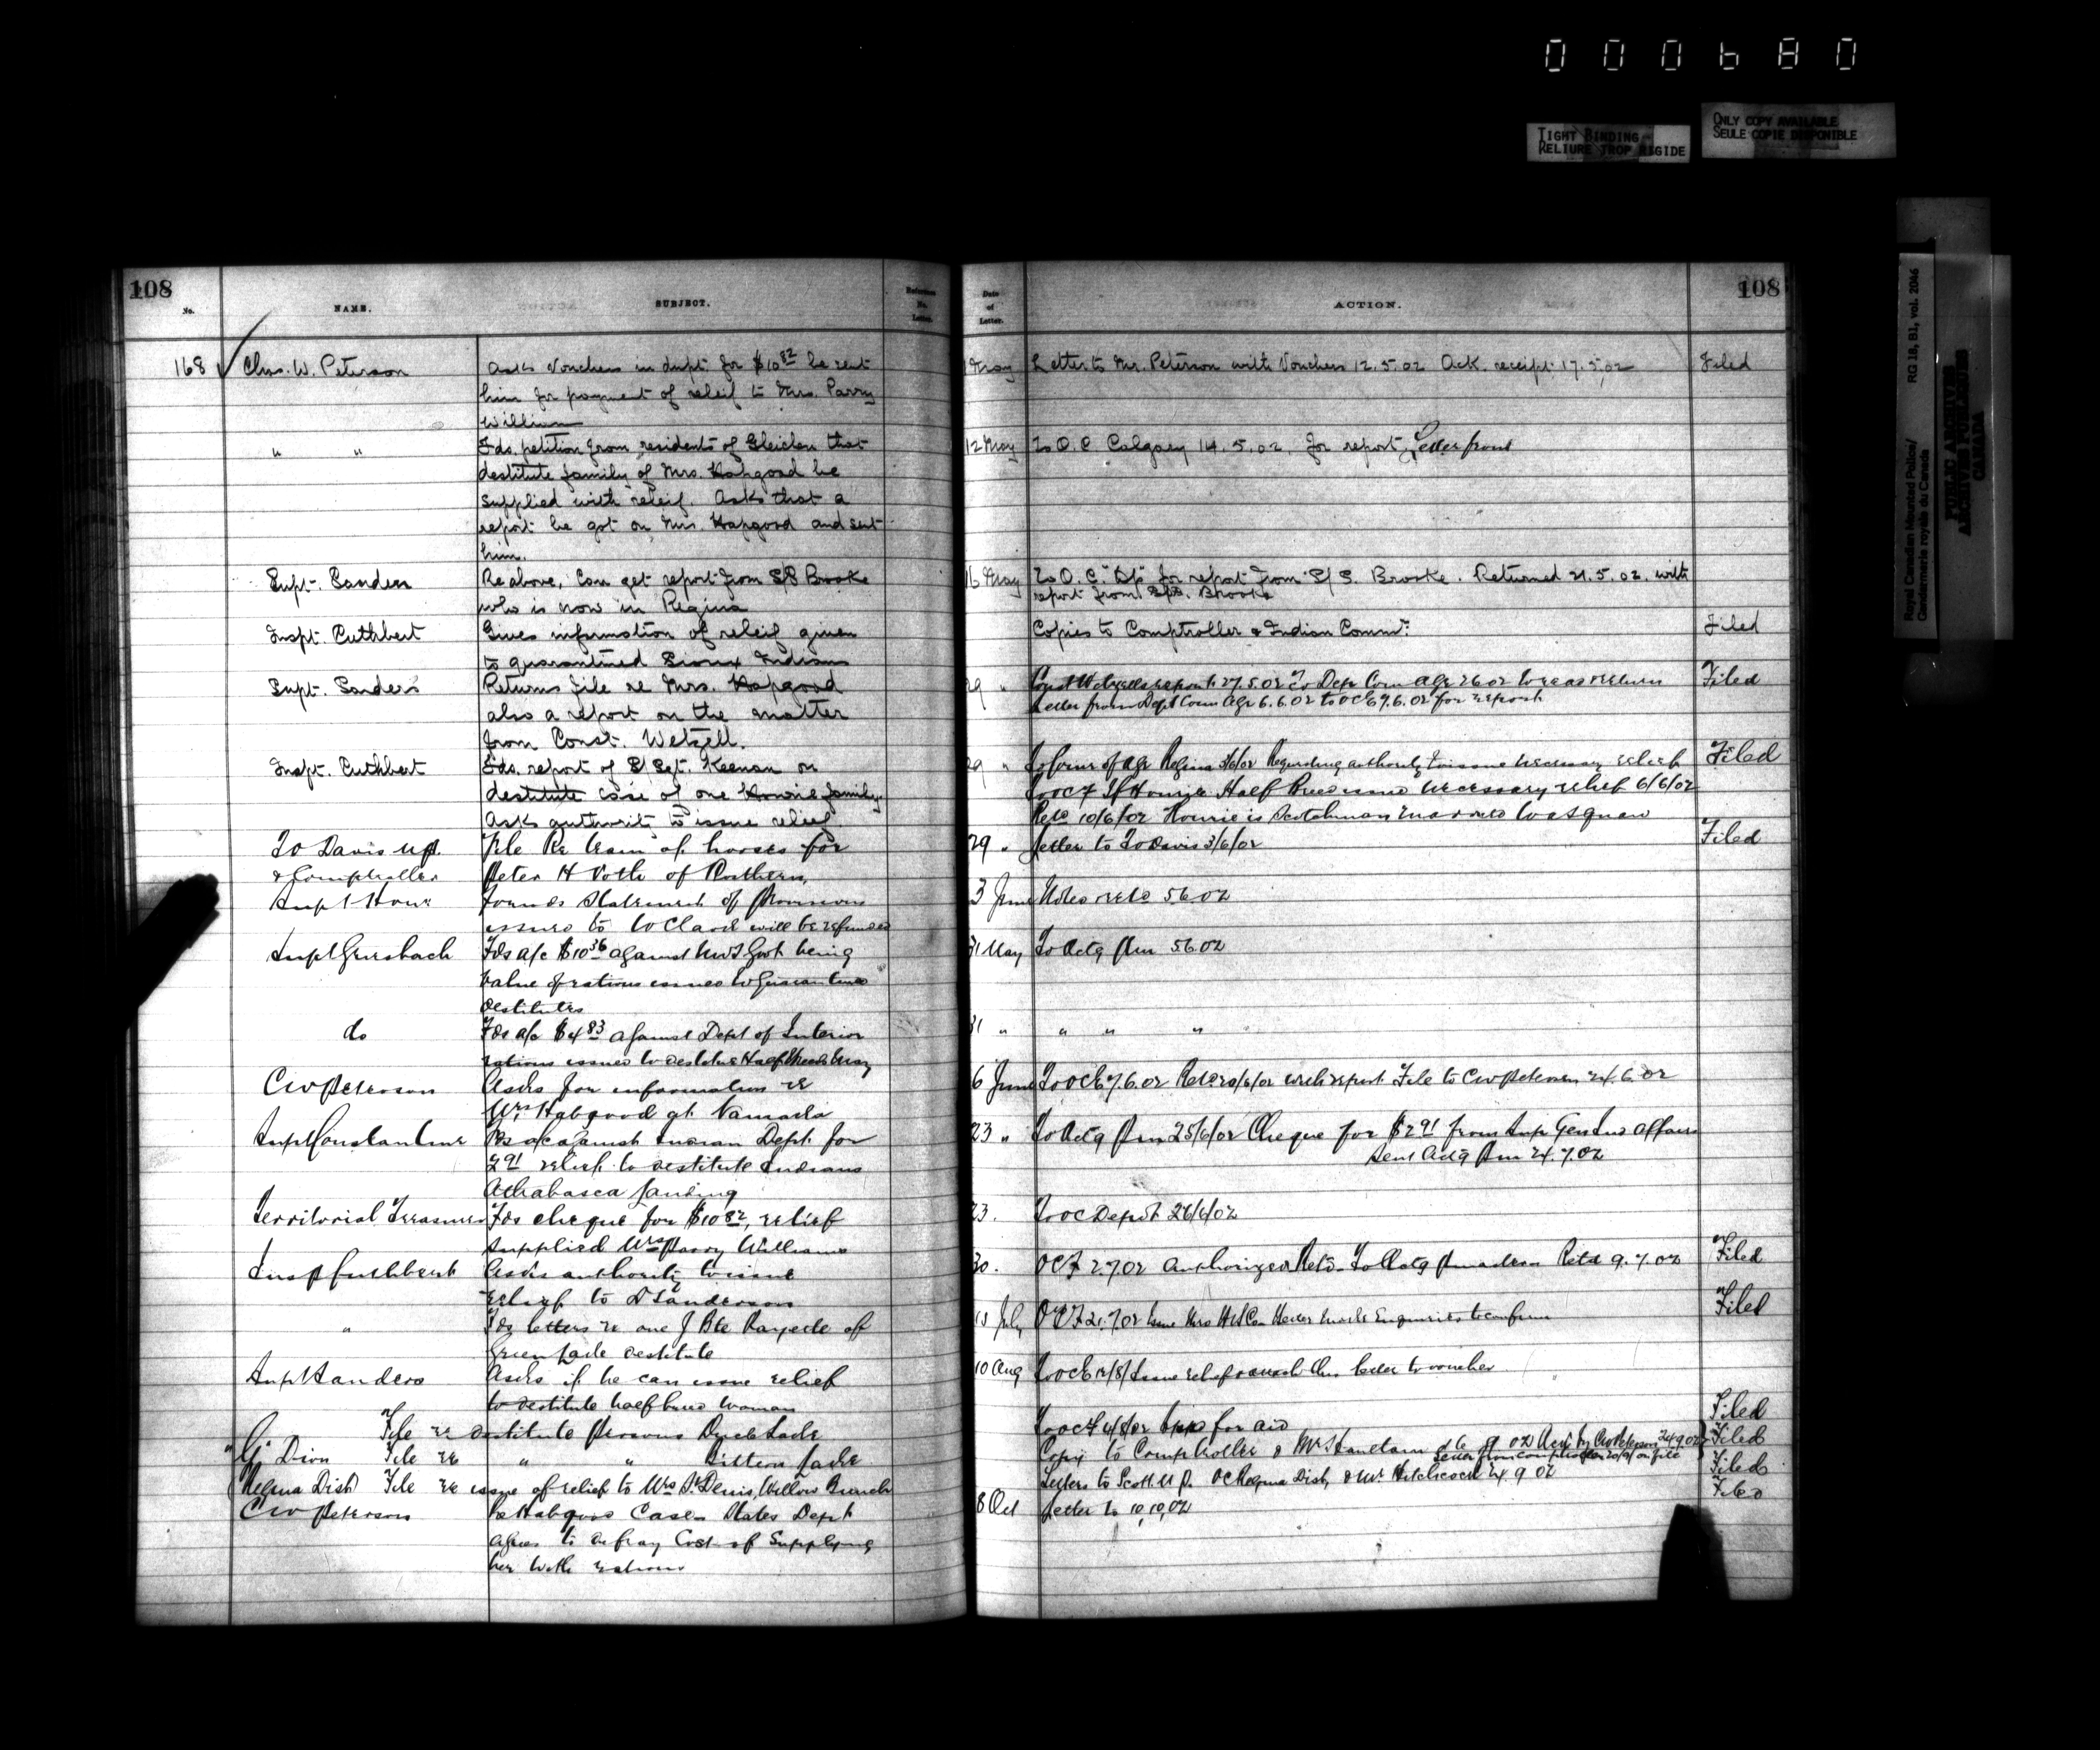 000680
TIGHT BINDING
RELIURE TROP RIGIDE
ONLY COPY AVAILABLE
SEULE COPIE DISPONIBLE
Royal Canadian Mounted Police/
Gendarmerie royale du Canada
RG 18, B1, vol. 2046
PUBLIC ARCHIVES
ARCHIVES PUBLIQUES
CANADA
108
No.
NAME.
SUBJECT.
Reference
No.
Letter.
168 Chas. W. Peterson
Asks Vouchers in dupt. for $10 82 be sent
him for payment of releif to Mrs. Parry
William
" "
Fds. petition from residents of Gleichen that
destitute family of Mrs. Hapgood be
supplied with releif. Asks that a
report be got on Mrs. Hapgood and sent
him.
Supt. Sanders
Re above, Can get report from S/S Brooke
who is now in Regina
Inspt. Cuthbert
Gives information of releif given
to quarantined Sioux Indians
Supt. Sanders
Returns file re Mrs. Hapgood
also a report on the matter
from Const. Wetzell.
Inspt. Cuthbert
Fds. report of S/Sgt. Keenan on
destitute case of one Hourie family.
Asks authority to issue releif
To Davis MP.
& Comptroller
File Re team of horses for
Peter H Voth of Rosthern
Supt Howe
Forwds Statement of Provisions
issued to W Clark will be refunded
Supt Griesbach
Fds a/c $10 36 against NWT Govt being
Value of rations issued to Quarantined
destitutes
do
Fds a/c $4 83 against Dept of Interior
rations issued to destitute Half Breeds May
CW Peterson
Asks for information re
Mrs Habgood at Namaka
Supt Constantine
Fds a/c against Indian Dept for
2 91 relief to destitute Indians
Athabasca Landing
Territorial Treasurer
Fds cheque for $10 82, relief
supplied Mrs Parry Williams
Insp Cuthbert
Asks authority to issue
relief to D Sanderson
"
Fds letters re one J Bte Rayede of
Green Lake destitute
Supt Sanders
Asks if he can issue relief
to destitute half breed woman
File re destitute Persons Duck Lake
G Dion File re " " Battleford
Regina Dist File re issue of relief to Mrs St Denis, Willow Bunch
CW Peterson
Re Habgood Case States Dept
agrees to defray Cost of Supplying
her with rations
Date
of
Letter.
ACTION.
108
May Letter to Mr. Peterson with Vouchers 12.5.02 Ack. receipt 17.5.02 Filed
12 May To O.C Calgary 14.5.02. for report, Letter from
16 May To O.C. "Dp" for report from S/S. Brooke. Returned 21.5.02. with
report from S/S. Brooke
Copies to Comptroller & Indian Commr. Filed
29 " Const Wetzells report 27.5.02 To Dep Com Agr 2 6 02 to read & return Filed
Letter from Dept Com Agr 6.6.02 to OC E 7.6.02 for report
29 " Regina 3/6/02 Regarding authority to issue necessary relief Filed
To OC F If Hourie Half Breed issue necessary relief 6/6/02
Retd 10/6/02 Hourie is Scotchman married to a Squaw
29 " Letter to To Davis 3/6/02 Filed
3 June Noted retd 5.6.02
31 May To Actg Pm 5.6.02
31 " " " "
6 June To OC E 7.6.02 Retd with report File to CW Peterson 24.6.02
23 " To Actg Pm 25/6/02 Cheque for $2 91 from Sup Gen Ind Affairs
Sent Actg Pm 24.7.02
23. To OC Depot 26/6/02
30. OC F 2.7.02 Authorized Retd Retd 9.7.02 Filed
15 July OC F 21.7.02 Filed
10 Aug To OC E Issue relief & attach this letter to voucher
To OC F for aid Filed
Copy to Comptroller & Mr Haultain Filed
Letter from Comptroller on file
Letters to Scott M P. OC Regina Dist, & Mr Hitchcock 24.9.02 Filed
8 Oct Letter to 10,10,02 Filed